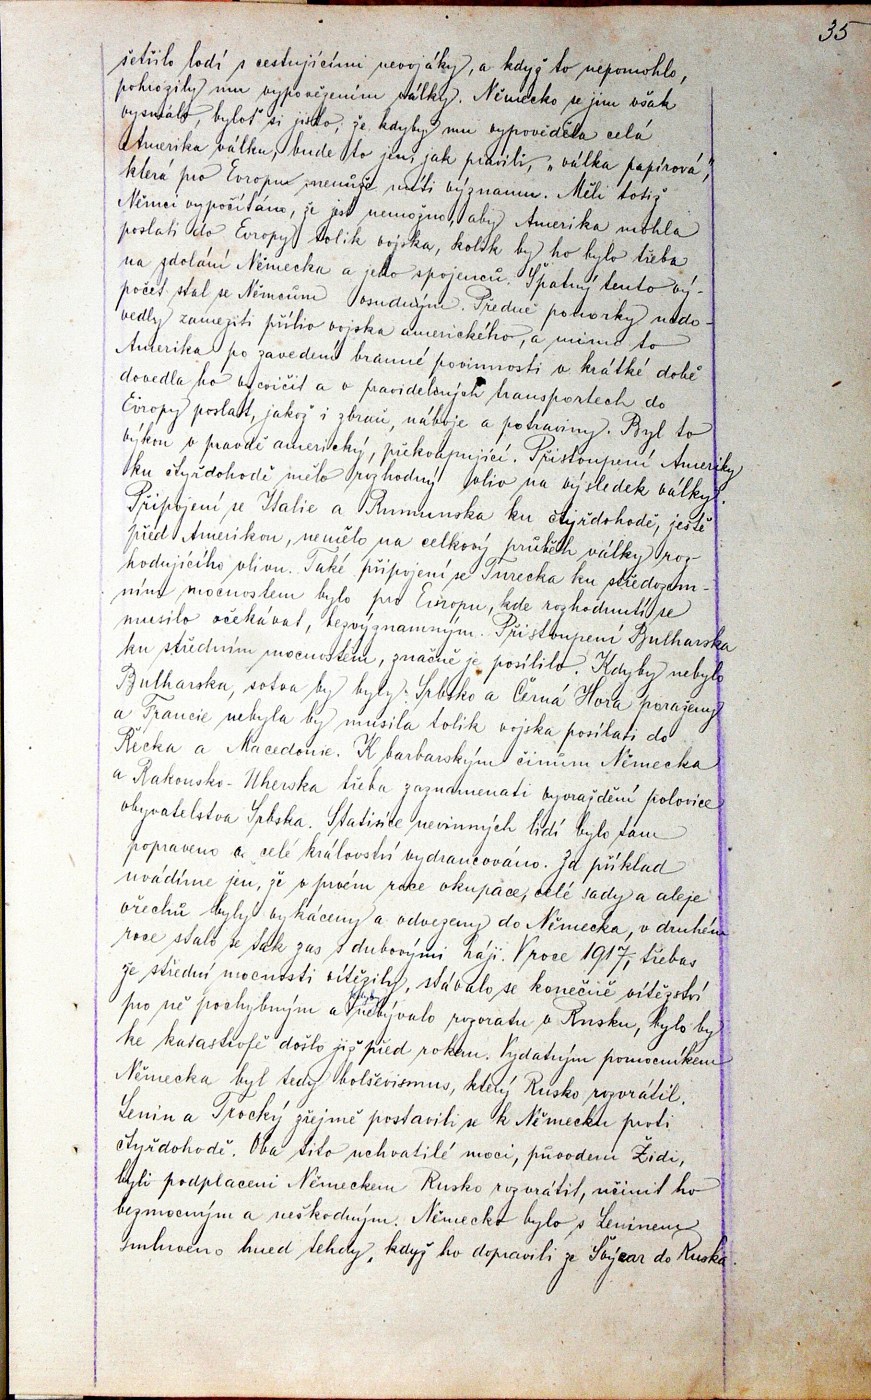 35
šetřilo lodí s cestujícími nevojáky, a když to nepomohlo,
pohrozily mu vypovězením války. Německo se jim však
vysmálo, byloť si jisto, že kdyby mu vypověděla celá
Amerika válku, bude to jen, jak pravili, „válka papírová“,
která pro Evropu nemůže míti významu. Měli totiž
Němci vypočítáno, že jest nemožno, aby Amerika mohla
poslati do Evropy tolik vojska, kolik by ho bylo třeba
na zdolání Německa a jeho spojenců. Špatný tento vý-
počet stal se Němcům osudným. Předně ponorky nedo-
vedly zameziti příliv vojska amerického, a mimo to
Amerika po zavedení branné povinnosti v krátké době
dovedla ho vycvičit a v pravidelných transportech do
Evropy poslat, jakož i zbraň, náboje a potraviny. Byl to
výkon v pravdě americký, překvapující. Přistoupení Ameriky
ku čtyřdohodě mělo rozhodný vliv na výsledek války.
Připojení se Italie a Rumunska ku čtyřdohodě, ještě
před Amerikou, nemělo na celkový průběh války roz
hodujícího vlivu. Také připojení se Turecka ku středozem-
ním mocnostem bylo pro Evropu, kde rozhodnutí se
musilo očekávat, bezvýznamným. Přistoupení Bulharska
ku středním mocnostem, značně je posílilo. Kdyby nebylo
Bulharska, sotva by byly Srbsko a Černá Hora poraženy
a Francie nebyla by musila tolik vojska posílati do
Řecka a Macedonie. K barbarským činům Německa
a Rakousko-Uherska třeba zaznamenati vyvraždění polovice
obyvatelstva Srbska. Statisíce nevinných lidí bylo tam
popraveno a celé království vydrancováno. Za příklad
uvádíme jen, že v prvém roce okupace, celé sady a aleje
ořechů byly vykáceny a odvezeny do Německa, v druhém
roce stalo se tak zas s dubovými háji. V roce 1917, třebas
že střední mocnosti vítězily, stávalo se konečné vítězství
pro ně pochybným a kdyby nebývalo rozvratu v Rusku, bylo by
ke katastrofě došlo již před rokem. Vydatným pomocníkem
Německa byl tedy bolševismus, který Rusko rozvrátil.
Lenin a Trocký zřejmě postavili se k Německu proti
čtyřdohodě. Oba tito uchvatilé moci, původem Židi,
byli podplaceni Německem Rusko rozvrátit, učinit ho
bezmocným a neškodným. Německo bylo s Leninem
smluveno hned tehdy, když ho dopravili ze Švýcar do Ruska.